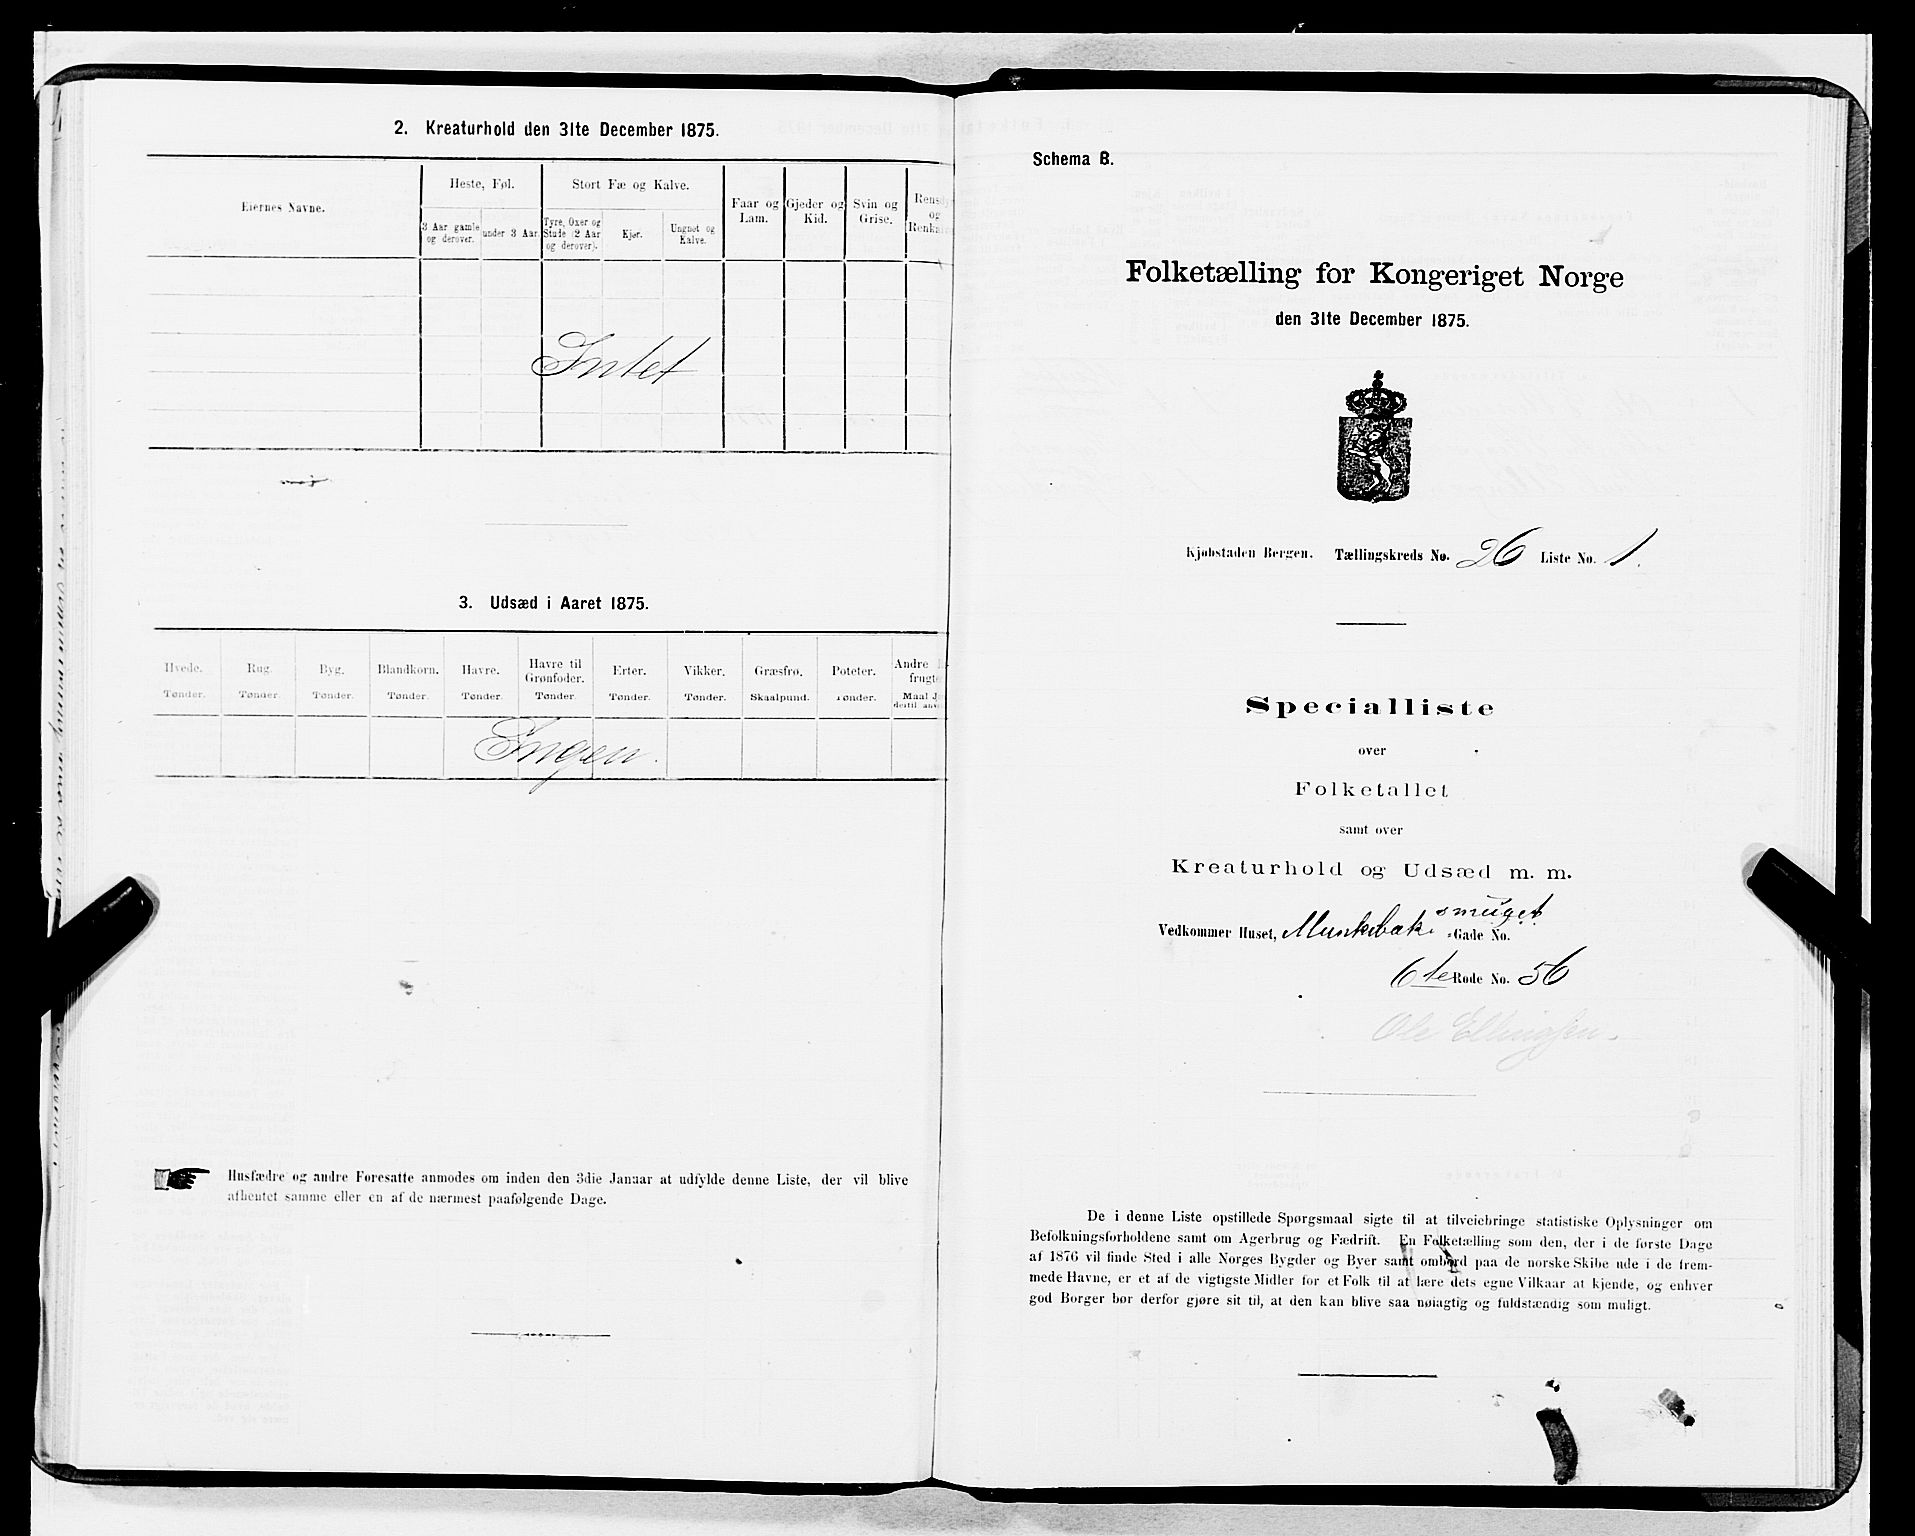 2. Kreaturhold den 31te December 1875.
Eiernes Navne.
Heste, Føl.
Stort Fæ og Kalve.
Faar og Lam.
Gjeder og Kid.
Svin og Grise.
og
3 Aar gamle og derover.
under 3 Aar.
Tyre, Oxer og Stude (2 Aar og derover).
Kjør.
Ungnøt og Kalve.
Intet
3. Udsæd i Aaret 1875.
Hvede. Rug. Byg. Blandkorn. Havre. Havre til Grønfoder. Erter. Vikker. Græsfrø. Poteter. Andre
Tønder. Tønder. Tønder. Tønder. Tønder. Tønder. Tønder. Tønder. Skaalpund. Tønder. Maal
Ingen.
Husfædre og andre Foresatte anmodes om inden den 3die Januar at udfylde denne Liste, der vil blive
afhentet samme eller en af de nærmest paafølgende Dage.
Schema B.
Folketælling for Kongeriget Norge
den 31te December 1875.
Kjøbstaden Bergen. Tællingskreds No. 26 Liste No. 1.
Specialliste
over
Folketallet
samt over
Kreaturhold og Udsæd m. m.
smuget
Vedkommer Huset, Munkebæk -Gade No.
6te Rode No. 56
Ole Ellingsen.
De i denne Liste opstillede Spørgsmaal sigte til at tilveiebringe statistiske Oplysninger om
Befolkningsforholdene samt om Agerbrug og Fædrift. En Folketælling som den, der i de første Dage
af 1876 vil finde Sted i alle Norges Bygder og Byer samt ombord paa de norske Skibe ude i de frem-
mede Havne, er et af de vigtigste Midler for et Folk til at lære dets egne Vilkaar at kjende, og enhver
god Borger bør derfor gjøre sit til, at den kan blive saa nøiagtig og fuldstændig som muligt.